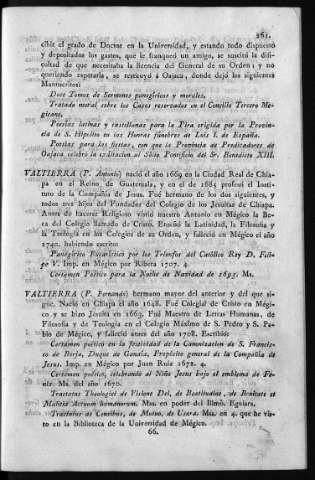 261.
cibir el grado de Doctor en la Universidad, y estando todo dispuesto
y depositados los gastos, que le franqueó un amigo, se suscitó la dificul-
tad de que necesitaba la licencia del General de su Orden: y no
queriendo esperarla, se restituyó á Oajaca, donde dejó los siguientes
Manuscritos:
Doce Tomos de Sermones panegíricos y morales.
Tratado moral sobre los Casos reservados en el Concilio Tercero Me-
gicano.
Poesías latinas y castellanas para la Pira erigida por la Provin-
cia de S. Hipólito en las Honras fúnebres de Luis I. de España.
Poesías para las fiestas, con que la Provincia de Predicadores de
Oajaca celebró la exâltacion al Solio Pontificio del Sr. Benedicto XIII.
VALTIERRA (P. Antonio) nació el año 1669 en la Ciudad Real de Chia-
pa en el Reino, de Guatemala, y en el de 1685 profesó el Insti-
tuto de la Compañía de Jesus. Fué hermano de los dos siguientes, y
todos tres hijos del Fundador del Colegio de los Jesuitas de Chiapa.
Antes de hacerse Religioso vistió nuestro Antonio en Mégico la Be-
ca del Colegio llamado de Cristo. Enseñó la Latinidad, la Filosofía y
la Teología en los Colegios de su Orden, y falleció en Mégico el año
1740. habiendo escrito:
Panegírico Eucarístico por los Triunfos del Católico Rey D. Feli-
pe V. Imp. en Mégico por Ribera 1707. 4.
Certamen Poético para la Noche de Navidad de 1695. Ms.
VALTIERRA (P. Fernando) hermano mayor del anterior y del que si-
gue. Nació en Chiapa el año 1648. Fué Colegial de Cristo en Mégi-
co y se hizo Jesuita en 1663. Fué Maestro de Letras Humanas, de
Filosofía y de Teología en el Colegio Máximo de S. Pedro y S. Pa-
blo de Mégico, y falleció antes del año 1708. Escribió:
Certamen poético en la festividad de la Canonizacion de S. Francis-
co de Borja, Duque de Gandía, Propósito general de la Compañía de
Jesus. Imp. en Mégico por Juan Ruiz 1672. 4.
Certamen poético, celebrando al Niño Jesus bajo el emblema de Fé-
nix. Ms. del año 1670.
Tractatus Theologici de Visione Dei, de Beatitudine, de Bonitate et
Malitia Actuum humanorum. Mss. en poder del Illmô. Eguiara.
Tractatus de Censibus, de Mutuo, de Usura. Mss. en 4. que he vis-
to en la Biblioteca de la Universidad de Mégico.
66.